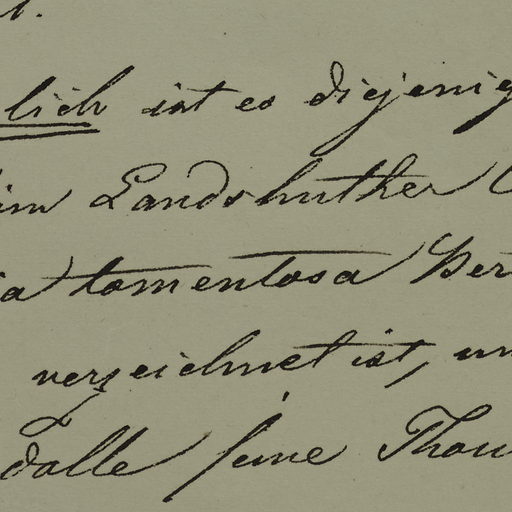 lich ist es diejenig
im Landshuther C
ia tomentosa Her
verzeichnet ist, un
dalle Jene Thou